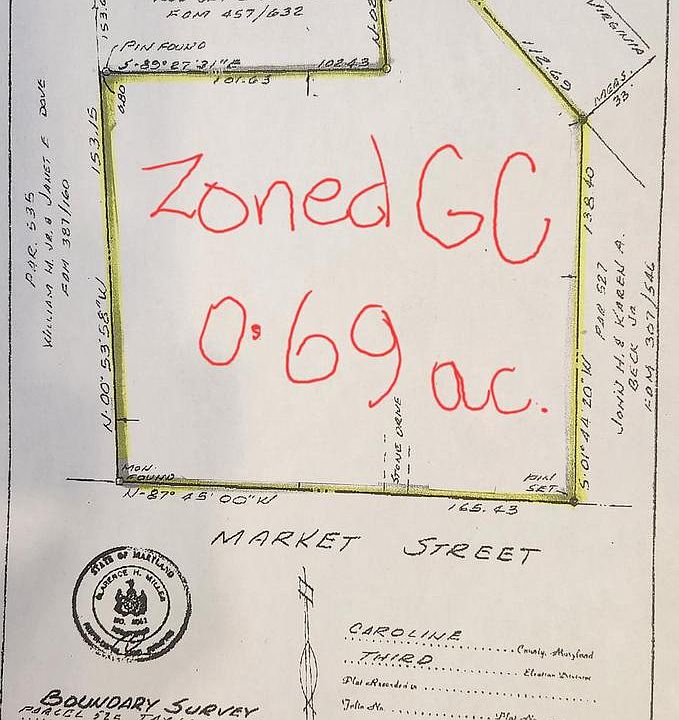 FDM 457/632
153.
N-02
VIRGINIA
PIN FOUND
S-89° 27' 31"E
102.43
101.63
0.80
112.60
MEAS.
33.
153.15
138.40
PAR. 535
WILLIAM H. JR. & JANET E DOVE
FDM 387/160
Zoned GC
0.69 ac.
PAR 527
JOHN H. & KAREN A.
BECK JR.
FDM 307/546
N-00° 53' 58"W
S-01° 44' 20"W
STONE DRIVE
MON.
FOUND
PIN
SET
N-87° 45' 00"W
165.43
MARKET STREET
STATE OF MARYLAND
CLARENCE H. MILLER
CAROLINE County, Maryland
THIRD Election District
Plat Recorded in
Folio No. Plat No.
BOUNDARY SURVEY
PARCEL 526